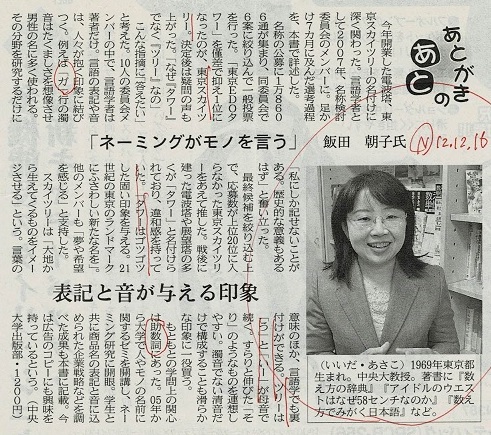 あとがきのあと
「ネーミングがモノを言う」
飯田 朝子氏
N 12.12.16
今年開業した電波塔、東
京スカイツリーの名付けに
深く関わった。言語学者と
して2007年、名称検討
委員会のメンバーに。足か
け7カ月に及んだ選考過程
を、本書で詳述した。
名称の公募に1万860
6通が集まり、同委員会で
6案に絞り込んで一般投票
を行った。「東京EDOタ
ワー」を僅差で抑え1位に
なったのが、東京スカイツ
リー。決定後は疑問の声も
上がった。「なぜ『タワー』
でなく『ツリー』なの」
こんな指摘に「答えたい」
と考えた。10人の委員会メ
ンバーの中で、言語学者は
著者だけ。言語の表記や音
は、人々が抱く印象に結び
つく。例えば「ガ」行の濁
音はたくましさを想像させ
男性の名に多く使われる。
その分野を研究するだけに
「私にしか記せないことが
ある。歴史的な意義もある
はず」と奮い立った。
最終候補を絞り込む上
で、応募数が上位20位に入
らなかった東京スカイツリ
ーをあえて推した。戦後に
建った電波塔や展望塔の多
くが「タワー」と名付けら
れており、違和感を持って
いた。「タワーはゴツゴツ
した固い印象を与える。21
世紀の東京のランドマーク
にふさわしい新たな名を」。
他のメンバーも「夢や希望
を感じる」と支持した。
スカイツリーは「大地か
ら生えてくるものをイメー
ジさせる」という。言葉の
表記と音が与える印象
意味のほか、言語学でも裏
付けができる。「ツリーは
『う』と『ー』が母音で
続く。すらりと伸びた『そ
り』のようなものを連想し
やすい。濁音でない清音だ
けで構成することも滑らか
な印象に一役買う」
もともとの学問上の関心
は助数詞にあった。05年か
ら大学で人やモノの名前に
関するゼミを開講し、ネー
ミング研究に開眼。学生と
共に商品名の表記と音に込
められた企業戦略などを調
べた成果も本書に記載。今
は広告のコピーにも興味を
持っているという。(中央
大学出版部・1200円)
(いいだ・あさこ)1969年東京都
生まれ。中央大教授。著書に『数
え方の辞典』『アイドルのウエス
トはなぜ58センチなのか』『数
え方でみがく日本語』など。